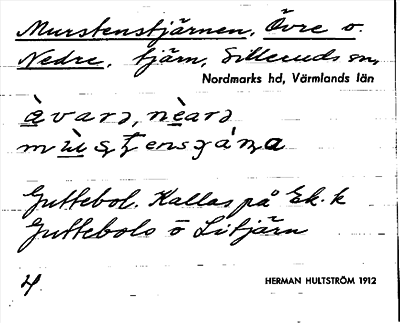 Murstenstjärnen, Övre o.
Nedre, tjärn, Silleruds sn,
Nordmarks hd, Värmlands län
Guttebol. Kallas på Ek. k
Guttebols ö Litjärn
HERMAN HULTSTRÖM 1912